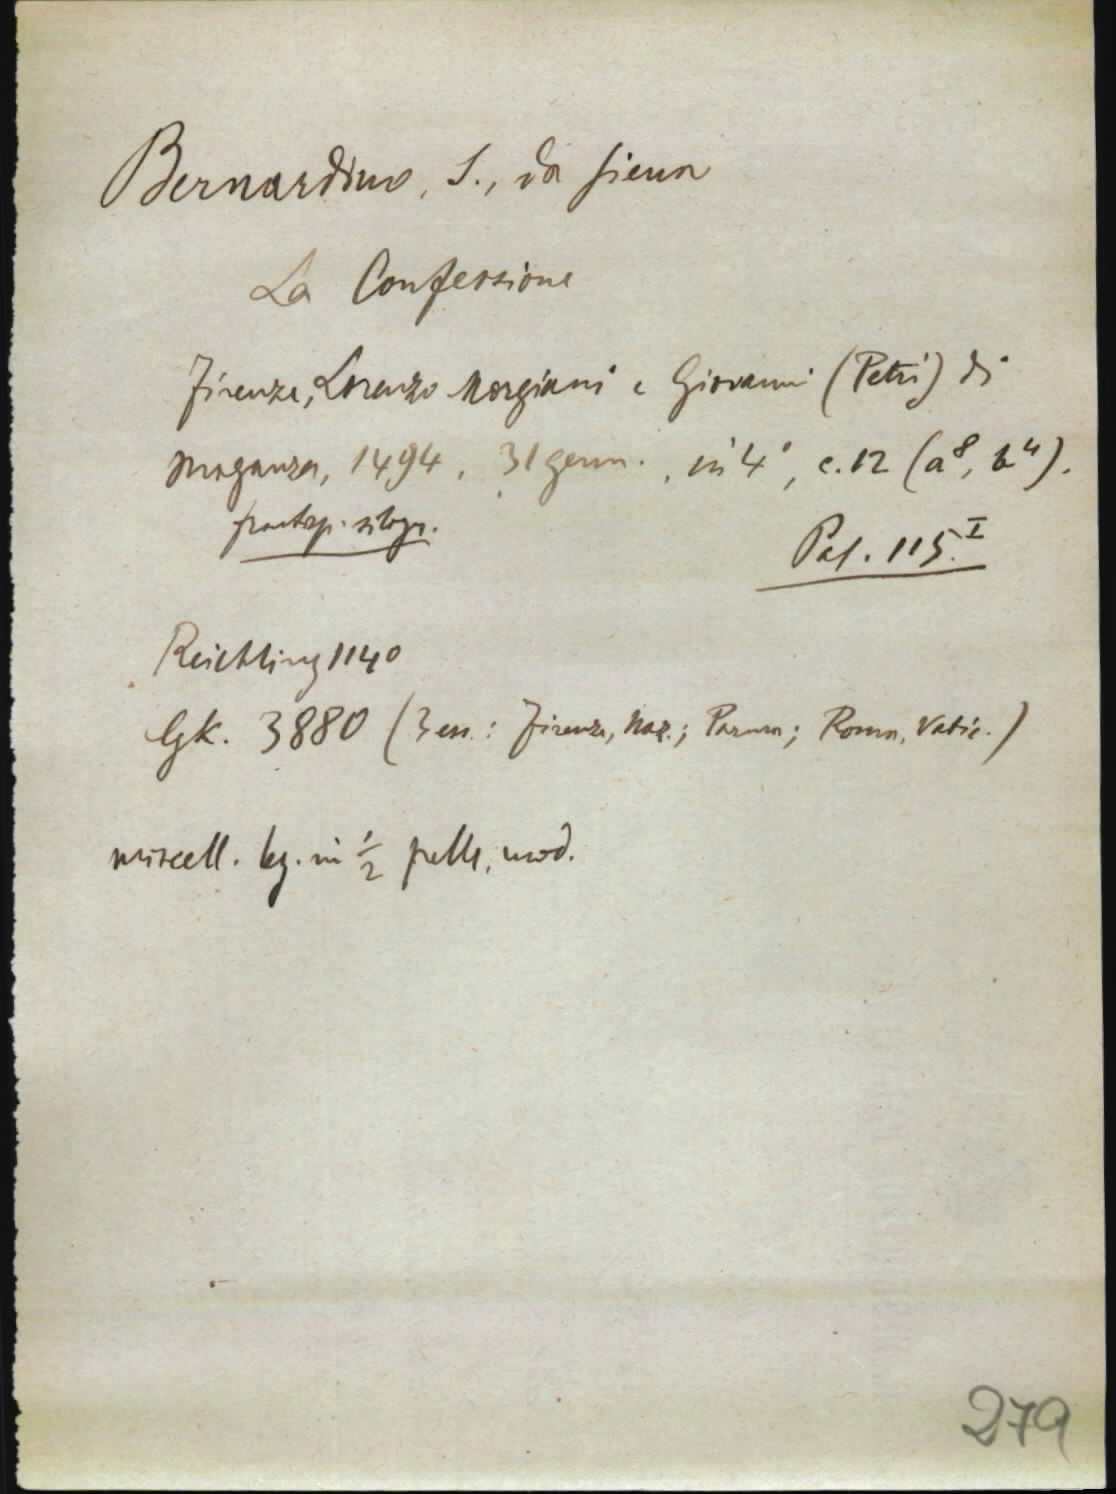 Bernardino, S., da Siena
La Confessione
Firenze, Lorenzo Morgiani e Giovanni (Petri) di
Maganza, 1494, 31 genn., in 4°, c. 12 (a⁸, b⁴).
frontesp. silogr.
Pal. 115.I
Reichling 1140
Gk. 3880 (3 es.: Firenze, Naz.; Parma; Roma, Vatic.)
miscell. leg. in 1/2 pelle, mod.
279